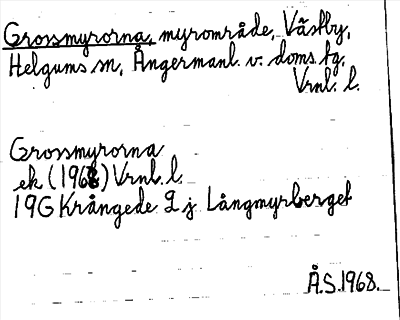 Grossmyrorna, myrområde, Västby,
Helgums sn, Ångermanl. v. doms.tg.
Vrnl. l.
Grossmyrorna
ek (1968) Vrnl. l.
19G Krångede 2 j Långmyrberget
Å.S. 1968.